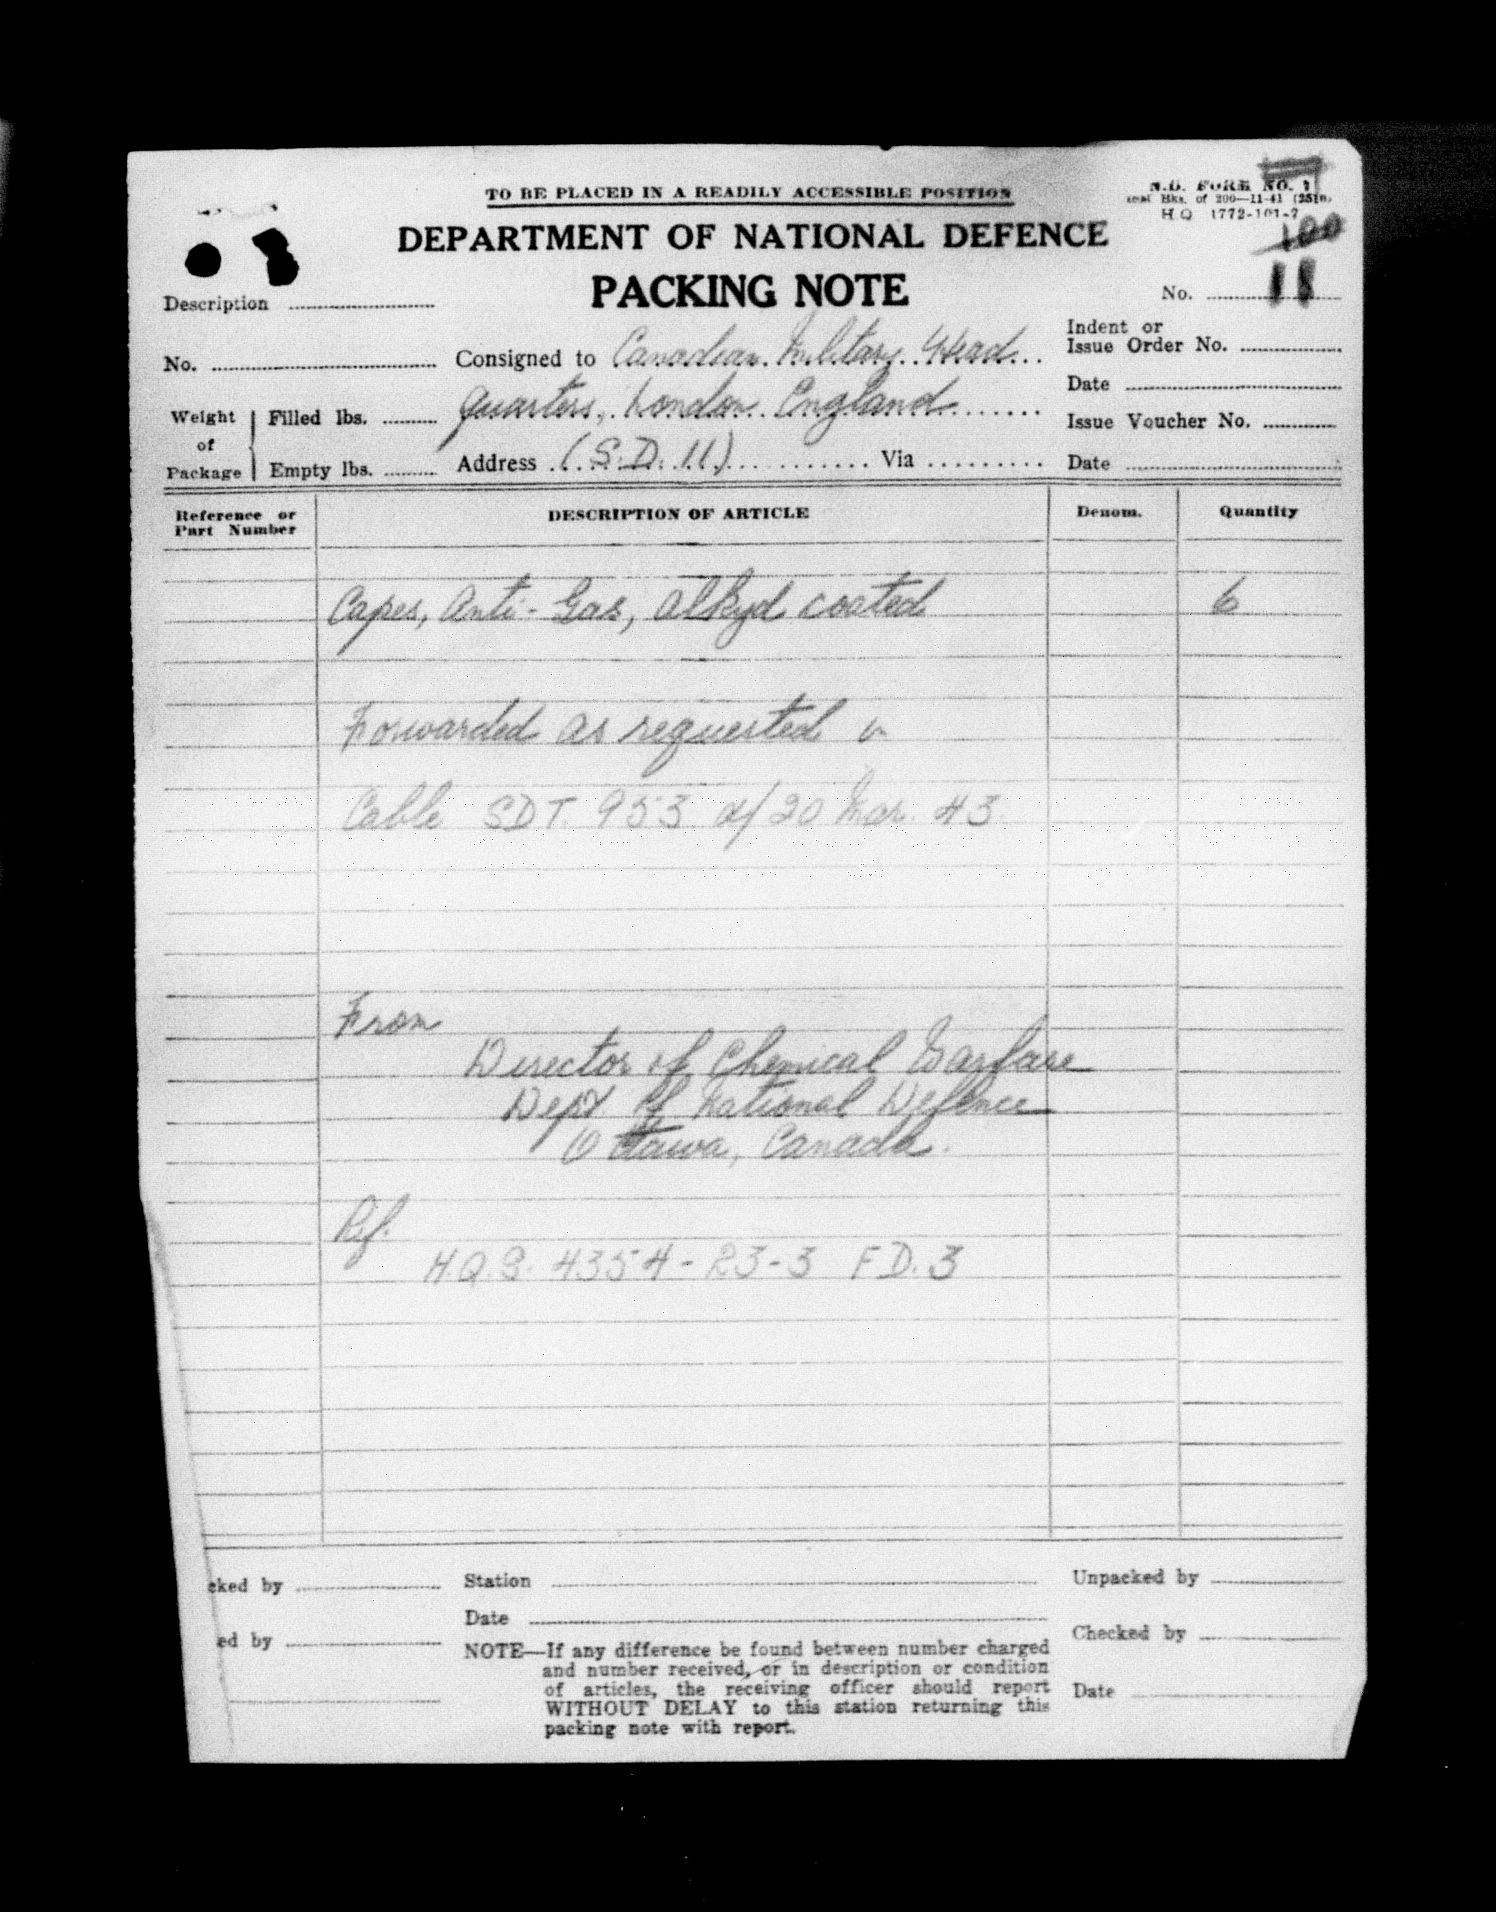 TO BE PLACED IN A READILY ACCESSIBLE POSITION
N.D. FORM NO.
Bks. of 200—11-41
H.Q 1772-101-7
100
DEPARTMENT OF NATIONAL DEFENCE
PACKING NOTE
No. 11
Description
Indent or
Issue Order No.
No.
Consigned to Canadian Military Head
Date
quarters, London England
Weight of Package
Filled lbs.
Issue Voucher No.
Empty lbs.
Address (S.D. 11) Via
Date
Reference or Part Number DESCRIPTION OF ARTICLE Denom. Quantity
Capes, Anti-Gas, Alkyd coated 6
Forwarded as requested in
Cable SDT. 953 d/20 Mar. 43
From
Director of Chemical Warfare
Dept of National Defence
Ottawa, Canada.
Ref.
H.Q.S. 4354-23-3 F D. 3
cked by
Station
Unpacked by
Date
ed by
Checked by
NOTE—If any difference be found between number charged
and number received, or in description or condition
of articles, the receiving officer should report
WITHOUT DELAY to this station returning this
packing note with report.
Date